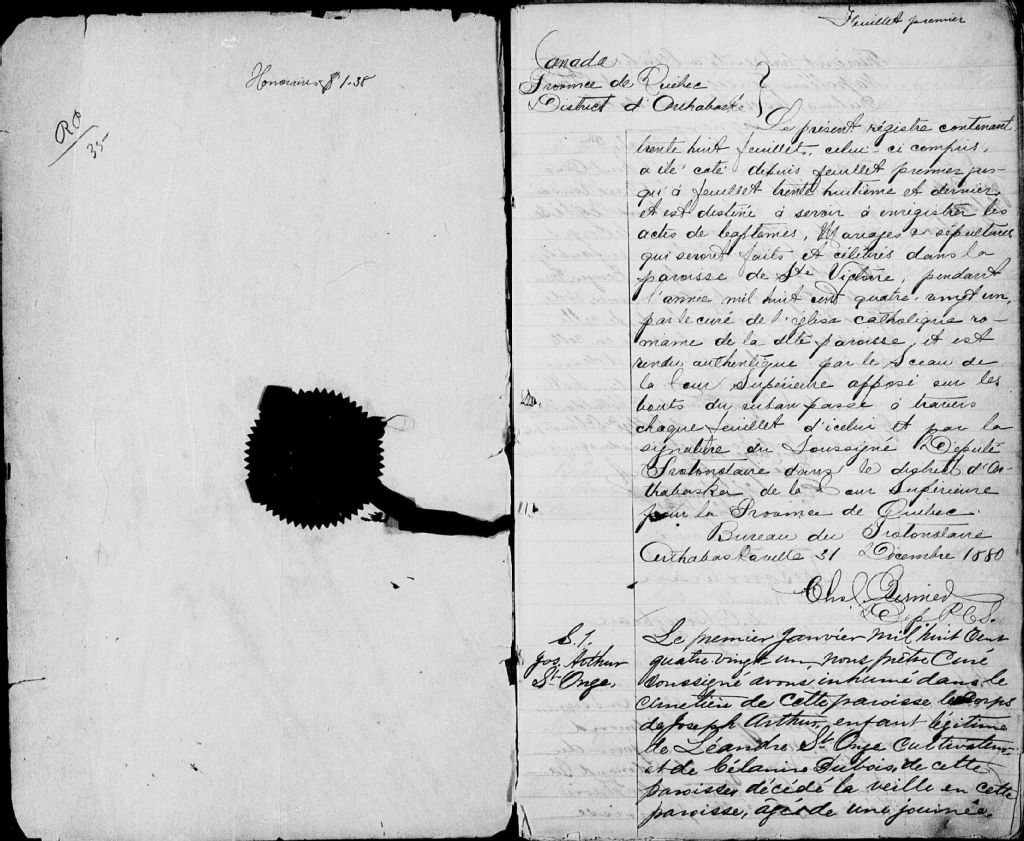 Honoraires $1.38
R &
35
Feuillet premier
Canada
Province de Québec
District d'Arthabaska
Le présent régistre contenant
trente huit feuillet, celui-ci compris,
a été coté depuis feuillet premier jus-
qu'à feuillet trente huitième et dernier,
et est destiné à servir à enregistrer les
actes de baptêmes, Mariages & sépultures
qui seront faits et célébrés dans la
paroisse de Ste Victoire, pendant
l'année mil huit cent quatre-vingt un,
par le curé de l'église catholique ro-
maine de la dite paroisse, et est
rendu authentique par le Sceau de
la Cour Supérieure apposé sur les
bouts du ruban passé à travers
chaque feuillet d'icelui et par la
signature du Soussigné Député
Protonotaire dans le district d'Ar-
thabaska de la Cour Supérieure
pour la Province de Québec.
Bureau du Protonotaire
Arthabaskaville 31 Décembre 1880
Dep. P.C.S.
S. 1.
Jos. Arthur
St Onge.
Le premier Janvier mil huit cent
quatre vingt un, nous prêtre Curé
soussigné avons inhumé dans le
cimetière de cette paroisse le corps
de Joseph Arthur, enfant légitime
de Léandre St Onge cultivateur
et de Célanire Dubois, de cette
paroisse, décédé la veille en cette
paroisse, âgé de une journée.